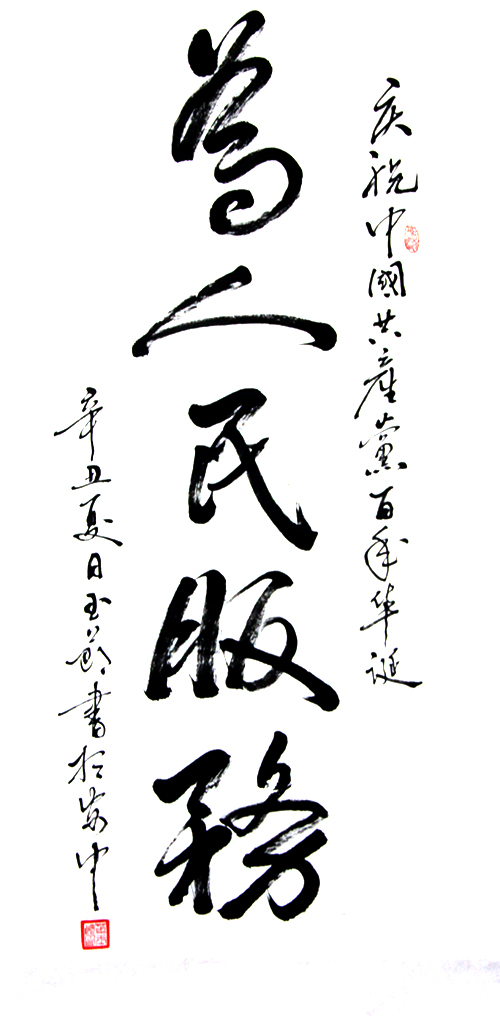 庆祝中國共產黨百年华誕
為人民服務
辛丑夏日玉節書於安中